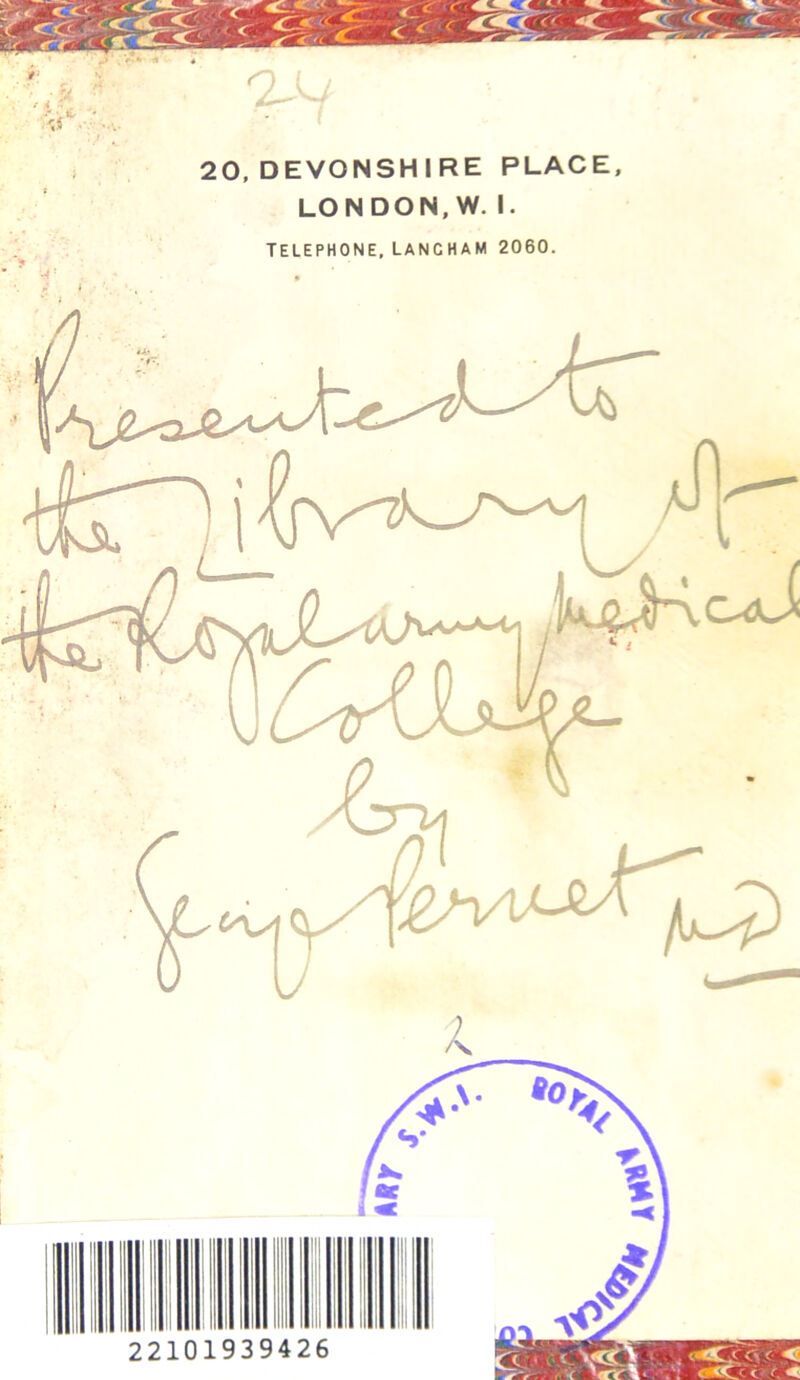 24
20, DEVONSHIRE PLACE,
LONDON, W. 1.
TELEPHONE, LANGHAM 2060.
Presented to
the Library of
the Royal Army Medical
College
by
George Pernet MD
2
ROYAL ARMY MEDICAL CO
ARY S.W.1.
22101939426